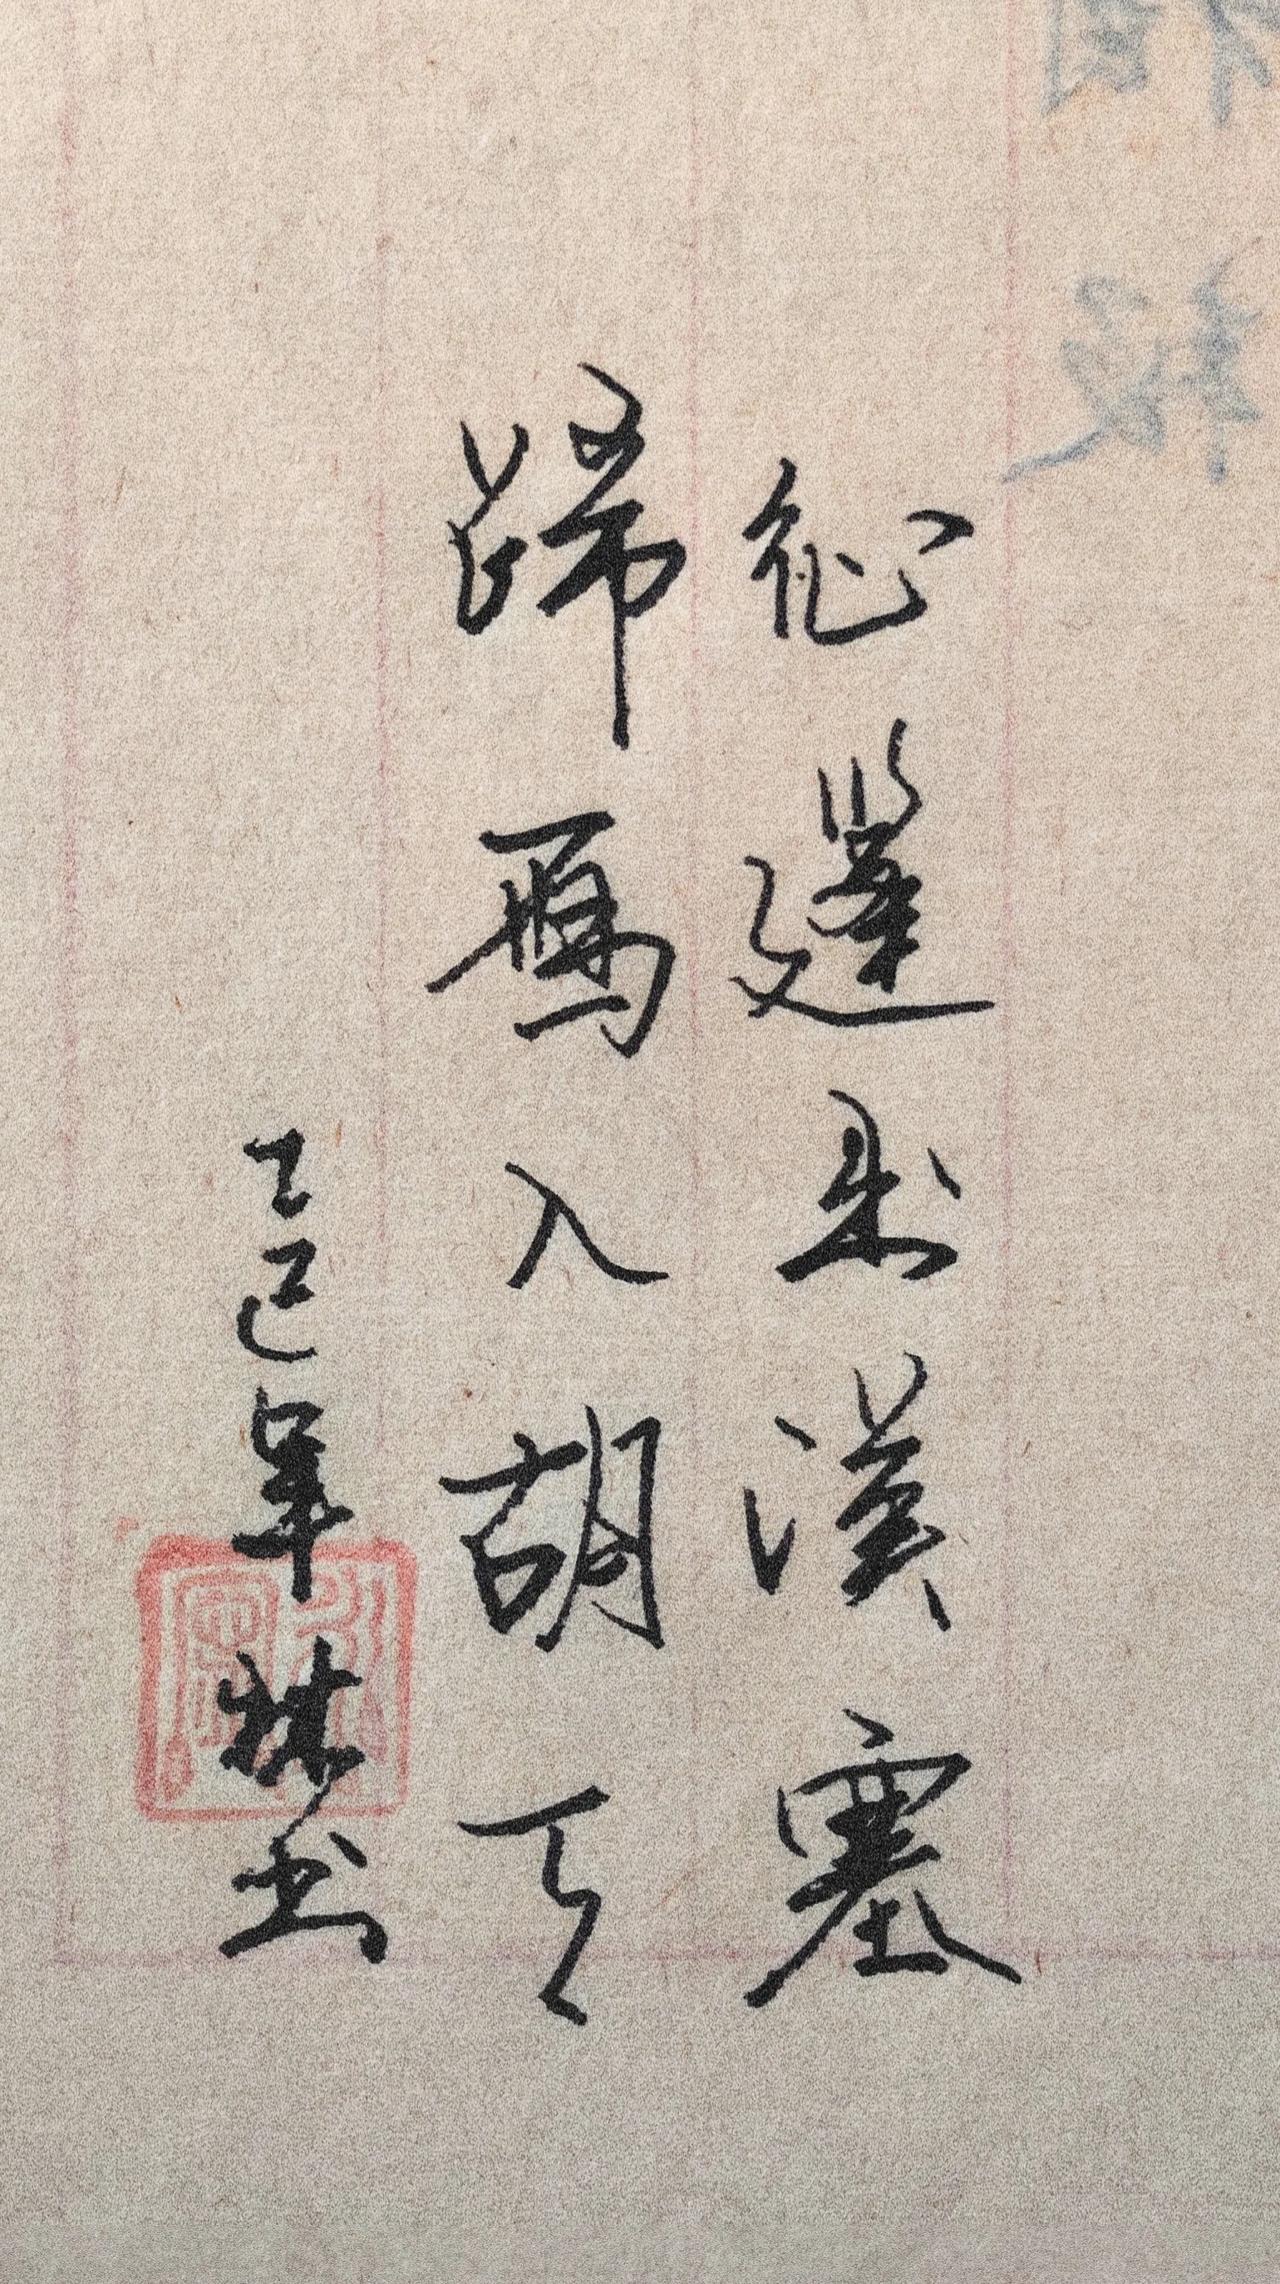 征蓬出漢塞
歸雁入胡天
乙巳年 書